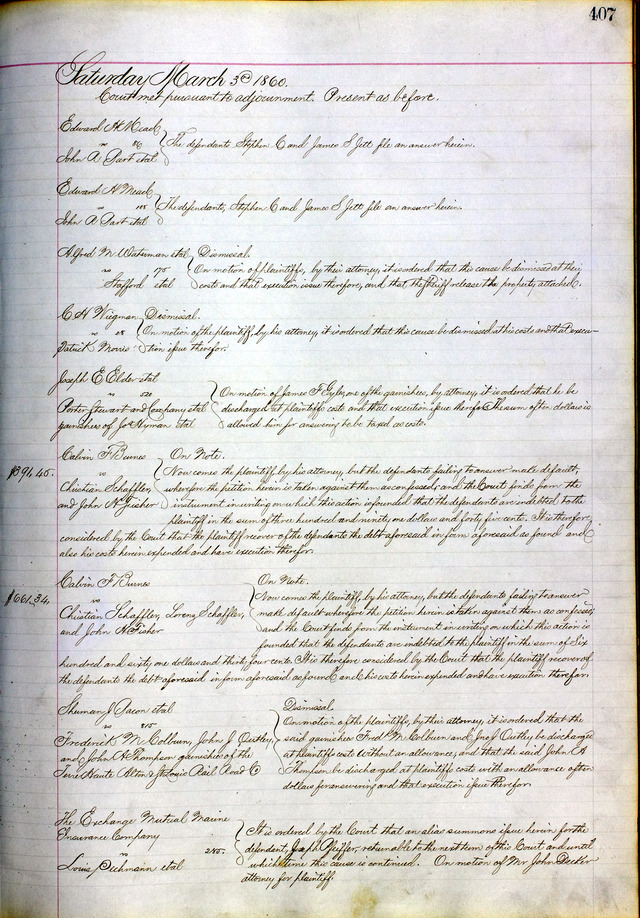 407
Saturday March 3d 1860.
Court met pursuant to adjournment. Present as before.
Edward H Mead
vs 86
John A Dart etal
The defendants Stephen C and James S Jett file an answer herein.
Edward H Mead
vs
John A Dart etal
The defendants, Stephen C and James S Jett file an answer herein.
Alfred M Waterman etal
vs 175
Stafford etal
Dismissal.
On motion of plaintiffs, by their attorney, it is ordered that this cause be dismissed at their
costs and that execution issue therefor, and that the Sheriff release the property attached.
C H Wiegman
vs
Patrick Morris
Dismissal.
On motion of the plaintiff, by his attorney, it is ordered that this cause be dismissed at his costs and that execu-
tion issue therefor.
Joseph E Elder etal
vs
Porter Stewart and Company etal
garnishees of Hyman etal
On motion of James F Eyler, one of the garnishees, by attorney, it is ordered that he be
discharged at plaintiffs costs and that execution issue therefor. The sum of ten dollars is
allowed him for answering to be taxed as costs.
$391,45.
Calvin F Burnes
vs
Christian Schaffler,
and John H Fisher
On Note.
Now comes the plaintiff, by his attorney, but the defendants failing to answer make default,
wherefore the petition herein is taken against them as confessed, and the Court finds from the
instrument in writing on which this action is founded that the defendants are indebted to the
plaintiff in the sum of three hundred and ninety one dollars and forty five cents. It is therefore,
considered by the Court that the plaintiff recover of the defendants the debt aforesaid in form aforesaid as found and
also his costs herein expended and have execution therefor.
$661,34.
Calvin F Burnes
vs
Christian Schaffler, Lorenz Schaffler,
and John H Fisher
On Note.
Now comes the plaintiff, by his attorney, but the defendants failing to answer
make default wherefore the petition herein is taken against them as confessed,
and the Court finds from the instrument in writing on which this action is
founded that the defendants are indebted to the plaintiff in the sum of Six
hundred and sixty one dollars and thirty four cents. It is therefore considered by the Court that the plaintiff recover of
the defendants the debt aforesaid in form aforesaid as found and his costs herein expended and have execution therefor.
Shuman J Bacon etal
vs 815
Frederick M Colburn, John J Outley,
and John A Thompson garnishees of the
Terre Haute Alton & St Louis Rail Road Co
Dismissal.
On motion of the plaintiffs, by their attorney, it is ordered that the
said garnishees Fred M Colburn and Jno J Outley be discharged
at plaintiffs cost without an allowance, and that the said John A
Thompson be discharged at plaintiffs costs with an allowance of ten
dollars for answering and that execution issue therefor.
The Exchange Mutual Marine
Insurance Company
vs
Louis etal
It is ordered by the Court that an alias summons issue herein for the
defendant, Joseph Pfeiffer, returnable to the next term of this Court and until
which time this cause is continued. On motion of Mr John Decker
attorney for plaintiff.